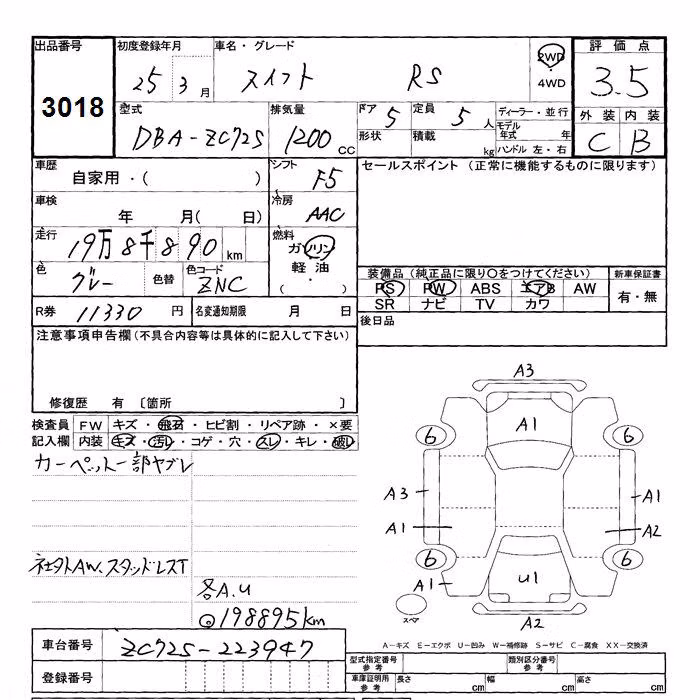 出品番号 初度登録年月 車名・グレード 2WD 評価点
3018 25 3月 スイフト RS 4WD 3.5
型式 排気量 ドア 5 定員 5人 ディーラー・並行 外装 内装
DBA-ZC72S 1200cc 形状 積載 kg モデル年式 年 C B
ハンドル 左・右
車歴 シフト セールスポイント (正常に機能するものに限ります)
自家用・( ) F5
車検 冷房
年 月( 日) AAC
走行 燃料
19万8千890km ガソリン
軽油
色 色替 色コード ・ 装備品(純正品に限り○をつけてください) 新車保証書
グレー ZNC ( ) PS PW ABS エアB AW 有・無
SR ナビ TV カワ
R券 11330円 名変通知期限 月 日 後日品
注意事項申告欄(不具合内容等は具体的に記入して下さい)
修復歴 有 〔箇所 〕
検査員 FW キズ・飛石・ヒビ割・リペア跡・×要
記入欄 内装 キズ・汚レ・コゲ・穴・スレ・キレ・破レ
カーペット一部ヤブレ
社外AW、スタッドレスT
各A.U
◎198895km
A3
A1
6 6
A3 A1
A1 A2
6 6
A1 U1
スペア
A2
A-キズ E-エクボ U-凹み W-補修跡 S-サビ C-腐食 XX-交換済
車台番号 ZC72S-223947
型式指定番号 参考 類別区分番号 参考
登録番号 車庫証明用 参考 長さ cm 幅 cm 高さ cm